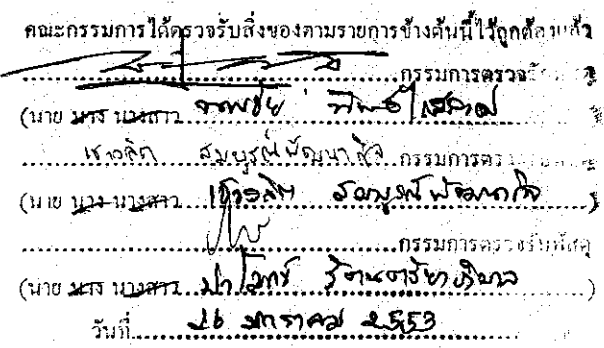 คณะกรรมการได้ตรวจรับสิ่งของตามรายการข้างต้นนี้ไว้ถูกต้องแล้ว
กรรมการตรวจรับพัสดุ
(นาย นาง นางสาว
เชาวลิต สมบูรณ์พัฒนากิจ กรรมการตรวจรับพัสดุ
(นาย นาง นางสาว เชาวลิต สมบูรณ์พัฒนากิจ )
กรรมการตรวจรับพัสดุ
(นาย นาง นางสาว ปาโมกข์ )
วันที่ 26 มกราคม 2553